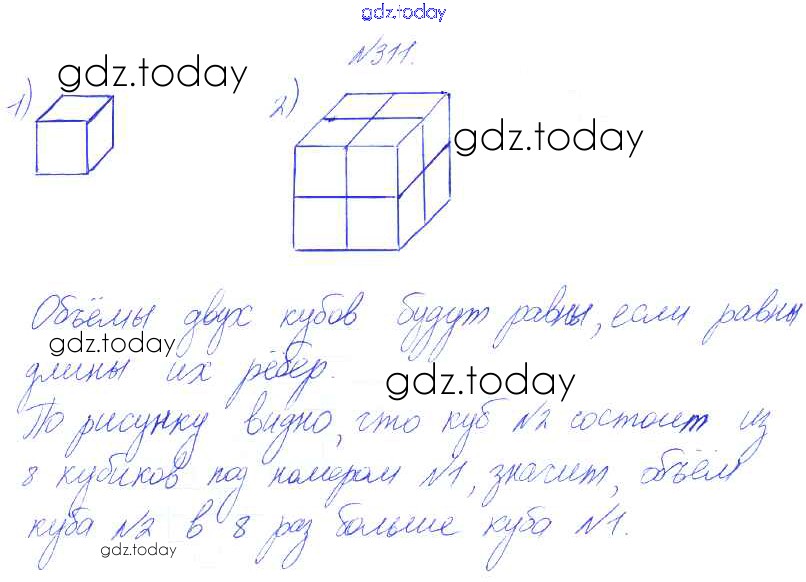 gdz.today
№311.
gdz.today
1)
2)
gdz.today
Объёмы двух кубов будут равны, если равны
gdz.today
длины их рёбер.
gdz.today
По рисунку видно, что куб №2 состоит из
8 кубиков под номером №1, значит, объём
куба №2 в 8 раз больше куба №1.
gdz.today